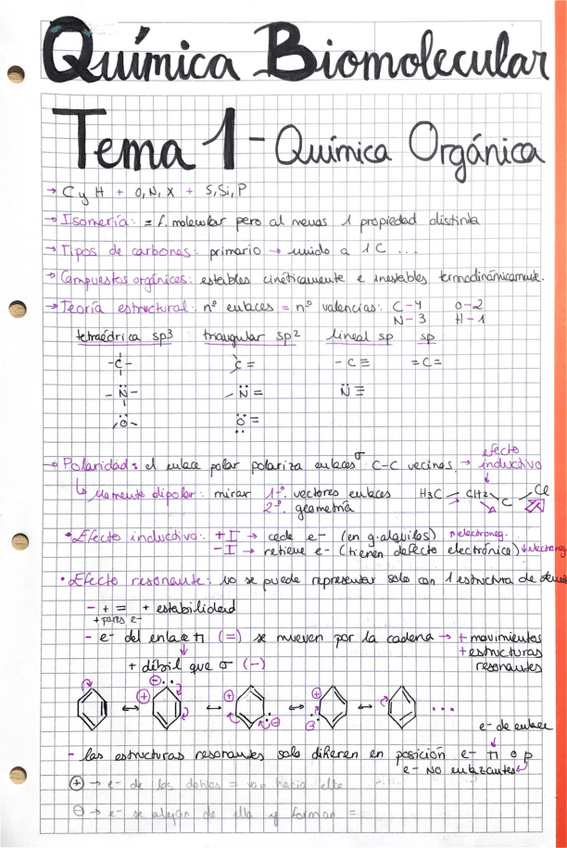 Química Biomolecular
Tema 1 - Química Orgánica
→ C y H + O, N, X + S, Si, P
→ Isomería: = f. molecular pero al menos 1 propiedad distinta
→ Tipos de carbonos: primario → unido a 1 C ...
→ Compuestos orgánicos: estables cinéticamente e inestables termodinámicamente.
→ Teoría estructural: nº enlaces = nº valencias: C-4 O-2
N-3 H-1
tetraédrica sp3 triangular sp2 lineal sp sp
-C- C= -C≡ =C=
-N- -N= N≡
O O=
→ Polaridad: el enlace polar polariza enlaces σ C-C vecinos → efecto inductivo
↳ Momento dipolar: mirar 1º vectores enlaces
2º geometría
H3C CH2 C Cl
• Efecto inductivo: +I → cede e- (en g. alquilos) electroneg.
-I → retiene e- (tienen defecto electrónico)
• Efecto resonante: no se puede representar solo con 1 estructura de
- + = + estabilidad
+ pares e-
- e- del enlace π (=) se mueven por la cadena → + movimientos
+ estructuras
resonantes
↓
+ débil que σ (-)
↔ ↔ ↔ ↔ ...
e- de enlace
- las estructuras resonantes solo difieren en posición e- π o p
e- NO enlazantes
⊕ → e- de los dobles = van hacia ella
⊖ → e- se alejan de ella y forman =